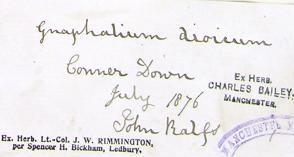 Gnaphalium dioicum
Conner Down
July 1876
John Ralfs
Ex Herb.
CHARLES BAILEY,
MANCHESTER.
MANCHESTER M
Ex. Herb. Lt.-Col. J. W. RIMMINGTON,
per Spencer H. Bickham, Ledbury.